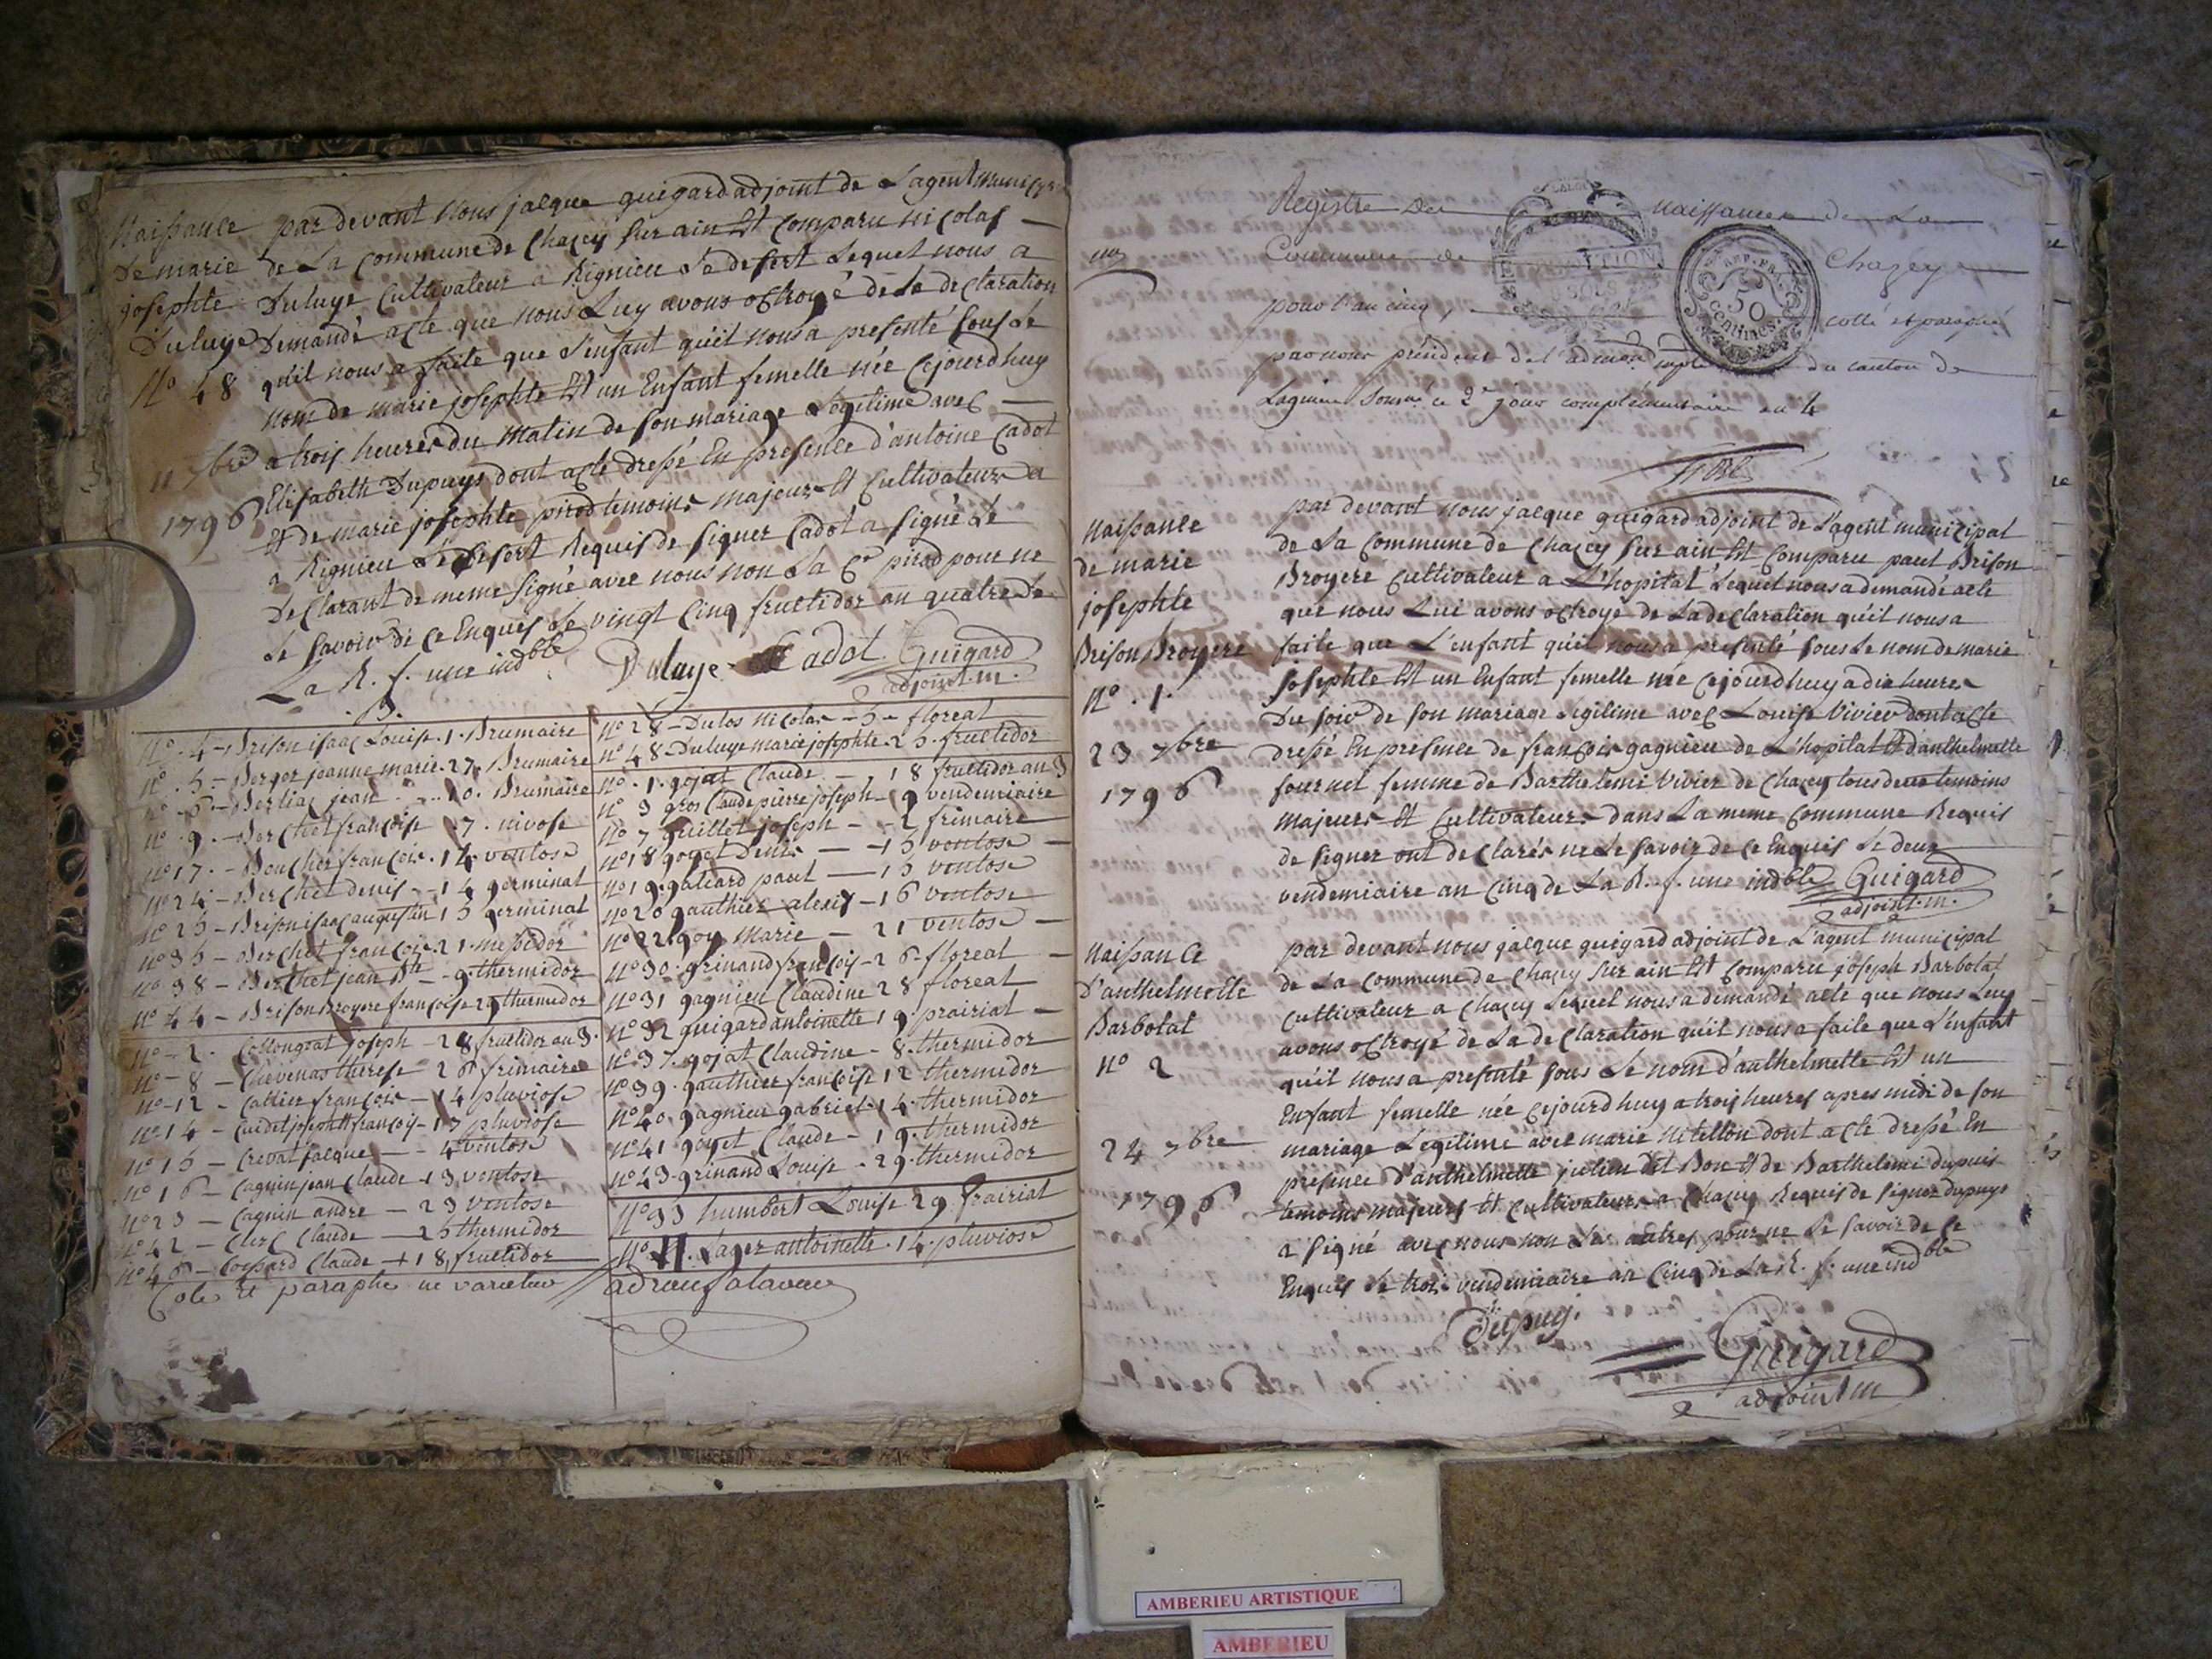 Naissance
De marie
josephte
Duluye
N° 48
11 7bre
1796
par devant nous jacque guigard adjoint de L'agent munici
de La Commune de Chazey sur ain Est Comparu nicolas
Duluye Cultivateur a Rignieu Le desert Lequel nous a
Demandé acte que nous Luy avons octroyé de La declaration
qu'il nous a faite que L'enfant qu'il nous a presenté sous Le
nom de marie josephte Est un Enfant femelle née Cejourdhuy
a trois heures du matin de son mariage Legitime avec
Elisabeth Dupuys dont acte dressé En presence d'antoine Cadot
Et de marie josephte pirod temoins majeurs Et Cultivateurs a
a Rignieu Le Desert Requis de signer Cadot a signé Le
declarant de meme signé avec nous non La Ce pirod pour ne
Le savoir de ce Enquis Le vingt Cinq fructidor an quatre de
La R. f. une indble
Duluye Cadot Guigard
adjoint. m.
N° 4 - Brison isaac Louise 1. Brumaire
N° 5 - Berger jeanne marie 27. Brumaire
N° 6 - Berliac jean 10. Brumaire
N° 9 - Berchet françoise 7. nivose
N° 17 - Boucher françois 14 ventose
N° 24 - Berchet denis 14 germinal
N° 25 - Brison isaac augustin 15 germinal
N° 35 - Berchet françois 21 messidor
N° 38 - Berchet jean Bte 9 thermidor
N° 44 - Brison Broyere françoise 29 thermidor
N° 2. Collongeat joseph 28 fructidor an 3.
N° 8 - Chevenas therese 26 frimaire
N° 12 - Cattier françois 14 pluviose
N° 14 - Cuidet joseph françois 17 pluviose
N° 15 - Crevat jacque 4 ventose
N° 16 - Cagnin jean Claude 13 ventose
N° 23 - Cagnin andre 23 ventose
N° 42 - Clerc Claude 25 thermidor
N° 46 - Cossard Claude 18 fructidor
N° 28 - Dulos nicolas 5 floreal
N° 48 Duluye marie josephte 25. fructidor
N° 1. gojat Claude 18 fructidor an 3
N° 3 gros Claude pierre joseph 9 vendemiaire
N° 7 guillet joseph 2 frimaire
N° 18 goyet Denis 15 ventose
N° 19. galiard paul 15 ventose
N° 20 gauthier alexis 16 ventose
N° 22 goy Marie 21 ventose
N° 30. grinand françois 26 floreal
N° 31 gagnieu Claudine 28 floreal
N° 32 guigard antoinette 19. prairiat
N° 37. gojat Claudine 8. thermidor
N° 39. gauthier françoise 12 thermidor
N° 40. gagnieu gabriel 14. thermidor
N° 41 goyet Claude 19. thermidor
N° 43. grinand Louise 29. thermidor
N° 33 humbert Louise 29 Prairiat
N° 11. Lager antoinette 14. pluviose
Coté Et paraphé ne varietur
Registre des naissances de La
Commune de Chazey
pour l'an cinq, cotté et paraphé
par nous président de l'admon mple du canton de
Lagnieu Soussé ce 2e jour complémentaire an 4
50
Centimes
Naissance
de marie
josephte
Brison Broyere
N° . 1.
23 7bre
1796
par devant nous jacque guigard adjoint de L'agent municipal
de La Commune de Chazey sur ain Est Comparu paul Brison
Broyere Cultivateur a L'hopital Lequel nous a demandé acte
que nous Lui avons octroyé de La declaration qu'il nous a
faite que L'enfant qu'il nous a presenté sous Le nom de marie
josephte Est un Enfant femelle née Cejourdhuy a dix heures
Du soir de son mariage Legitime avec Louise Vivier dont acte
dressé En presence de françois gagnieu de L'hopital Et d'anthelmette
fournet femme de Barthelemi Vivier de Chazey tous deux temoins
majeurs Et Cultivateurs dans La meme Commune Requis
de signer ont declarés ne Le savoir de ce Enquis Le deux
vendemiaire an Cinq de La R. f. une indble Guigard
adjoint. m.
Naissance
d'anthelmette
Barbolat
N° 2
24 7bre
1796
par devant nous jacque guigard adjoint de L'agent municipal
de La Commune de Chazey sur ain Est Comparu joseph Barbolat
Cultivateur a Chazey Lequel nous a demandé acte que nous Luy
avons octroyé de La declaration qu'il nous a faite que L'enfant
qu'il nous a presenté sous Le nom d'anthelmette Est un
Enfant femelle née Cejourdhuy a trois heures apres midi de son
mariage Legitime avec marie nitellon dont acte dressé En
presence d'anthelmette julien dit Bon Et de Barthelemi dupuis
temoins majeurs Et Cultivateurs a Chazey Requis de signer dupuys
a signé avec nous non Les autres pour ne Le savoir de Ce
Enquis Le trois vendemiaire an Cinq de La R. f. une indble
Dupuy.
Guigard
adjoint m
AMBERIEU ARTISTIQUE
AMBERIEU